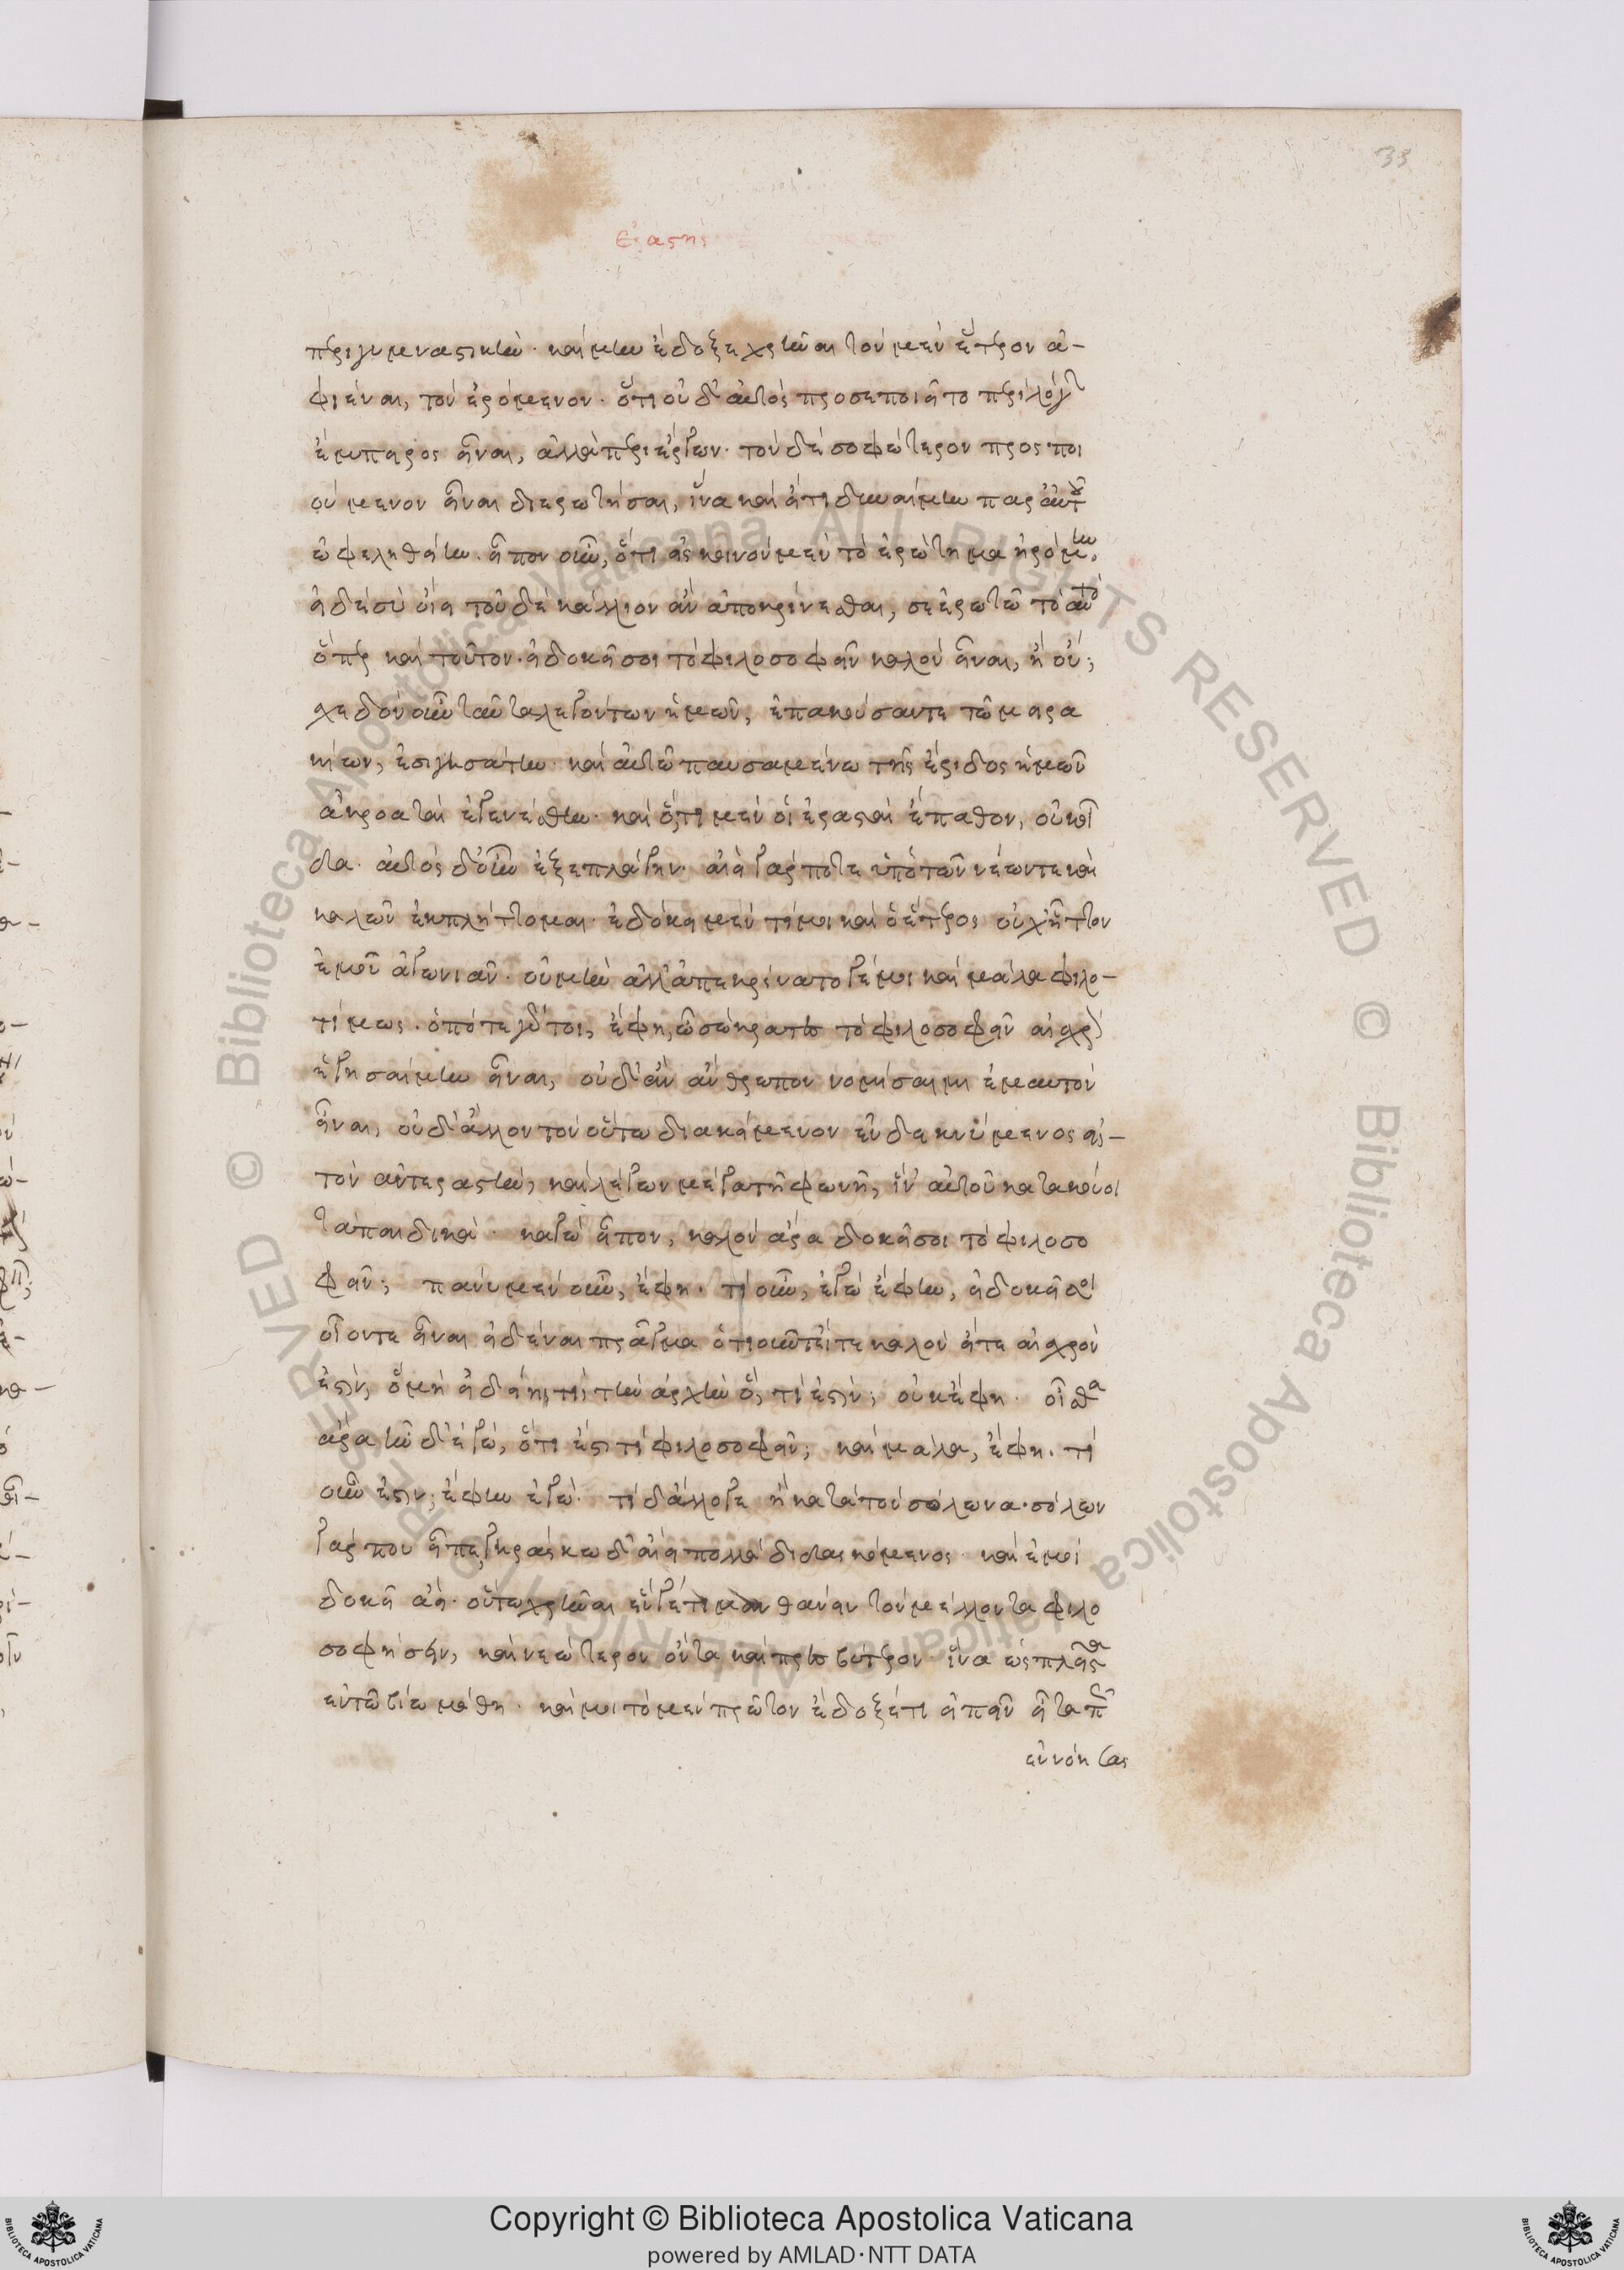 33
ἐρασταὶ
περὶ γυμναστικὴν· καί μοι ἔδοξε χρῆναι τὸν μὲν ἕτερον ἀ-
φιέναι, τὸν ἐρόμενον· ὅτι οὐδ' αὐτὸς προσεποιεῖτο περὶ λόγων
ἔμπειρος εἶναι, ἀλλὰ περὶ ἔργων· τὸν δὲ σοφώτερον προσποι
ούμενον εἶναι διερωτῆσαι, ἵνα καὶ εἴ τι δυναίμην παρ' αὐτοῦ
ὠφεληθείην. εἶπον οὖν, ὅτι εἰς κοινὸν μὲν τὸ ἐρώτημα ἠρόμην,
εἰ δὲ σὺ οἴει τοῦδε κάλλιον ἂν ἀποκρίνεσθαι, σὲ ἐρωτῶ τὸ αὐτὸ
ὅπερ καὶ τοῦτον· εἰ δοκεῖ σοι τὸ φιλοσοφεῖν καλὸν εἶναι, ἢ οὔ;
σχεδὸν οὖν ταῦτα λεγόντων ἡμῶν, ἐπακούσαντε τὼ μειρα
κίω, ἐσιγησάτην· καὶ αὐτὼ παυσαμένω τῆς ἔριδος ἡμῶν
ἀκροαταὶ ἐγενέσθην· καὶ ὅ, τι μὲν οἱ ἐρασταὶ ἔπαθον, οὐκ οἶ
δα. αὐτὸς δ' οὖν ἐξεπλάγην· ἀεὶ γάρ ποτε ὑπὸ τῶν νέων τε καὶ
καλῶν ἐκπλήττομαι· ἐδόκει μέν τοι μοι καὶ ὁ ἕτερος οὐχ ἧττον
ἐμοῦ ἀγωνιᾶν· οὐ μὴν ἀλλ' ἀπεκρίνατό γέ μοι καὶ μάλα φιλο-
τίμως. ὁπότε γάρ τοι, ἔφη, ὦ σώκρατες τὸ φιλοσοφεῖν αἰσχρὸν
ἡγησαίμην εἶναι, οὐδ' ἂν ἄνθρωπον νομίσαιμι ἐμαυτὸν
εἶναι, οὐδ' ἄλλον τὸν οὕτω διακείμενον ἐνδεικνύμενος εἰς
τὸν ἀντεραστὴν, καὶ λέγων μεγάλῃ τῇ φωνῇ, ἵν' αὐτοῦ κατακούοι
τὰ παιδικά· κἀγὼ εἶπον, καλὸν ἄρα δοκεῖ σοι τὸ φιλοσο
φεῖν; πάνυ μὲν οὖν, ἔφη. τί οὖν, ἐγὼ ἔφην, ἢ δοκεῖ σοι
οἷόν τε εἶναι εἰδέναι πρᾶγμα ὁτιοῦν εἴτε καλὸν εἴτε αἰσχρὸν
ἐστιν, ὃ μὴ εἰδείη τις τὴν ἀρχὴν ὅ, τι ἐστίν; οὐκ ἔφη. οἶσθα
ἄρα ἦν δ' ἐγώ, ὅτι ἐστὶ φιλοσοφεῖν; καὶ μάλα, ἔφη. τί
οὖν ἐστιν; ἔφην ἐγώ· τί δ' ἄλλο γε ἢ κατὰ τὸν σόλωνα· σόλων
γάρ που εἶπε, γηράσκω δ' ἀεὶ πολλὰ διδασκόμενος· καὶ ἐμοὶ
δοκεῖ ἀεὶ· οὕτω χρῆναι ἕν γέ τι μανθάνειν τὸν μέλλοντα φιλο
σοφήσειν, καὶ νεώτερον ὄντα καὶ πρεσβύτερον· ἵνα ὡς πλεῖστα
ἐν τῷ βίῳ μάθῃ· καί μοι τὸ μὲν πρῶτον ἔδοξέ τι εἰπεῖν εἶτά πως
ἐννοήσας